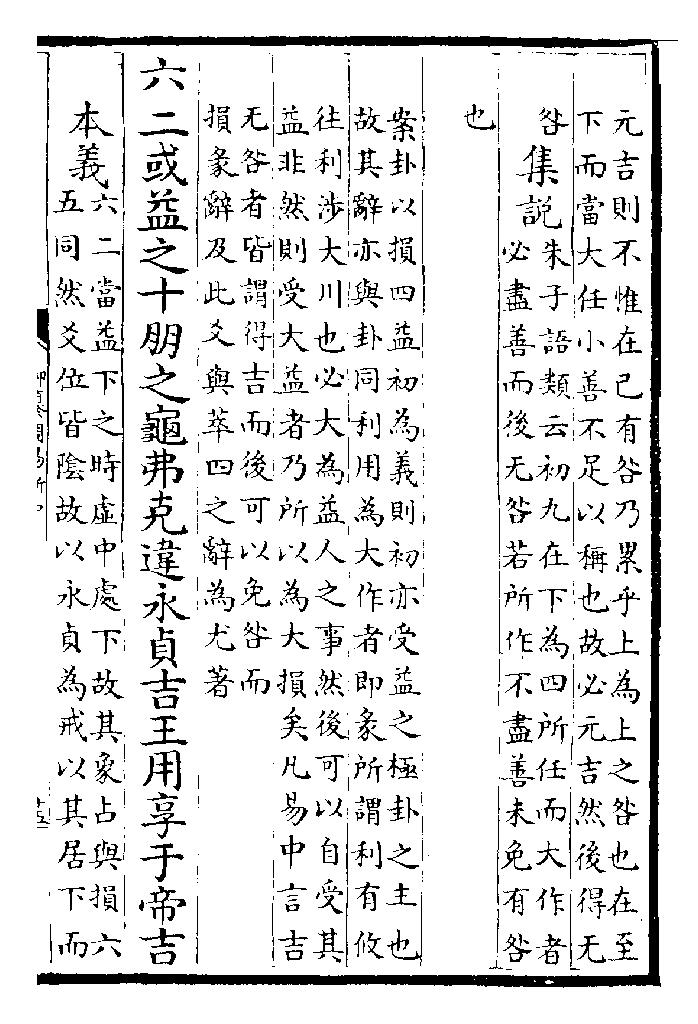 元吉則不惟在已有咎乃累乎上為上之咎也在至
下而當大任小善不足以稱也故必元吉然後得无
咎
集說
朱子語類云初九在下為四所任而大作者
必盡善而後无咎若所作不盡善未免有咎
也
案卦以損四益初為義則初亦受益之極卦之主也
故其辭亦與卦同利用為大作者即彖所謂利有攸
往利涉大川也必大為益人之事然後可以自受其
益非然則受大益者乃所以為大損矣凡易中言吉
无咎者皆謂得吉而後可以免咎而
損彖辭及此爻與萃四之辭為尤著
六二或益之十朋之龜弗克違永貞吉王用享于帝吉
本義
六二當益下之時虛中處下故其象占與損六
五同然爻位皆陰故以永貞為戒以其居下而
御直周易折中
十五